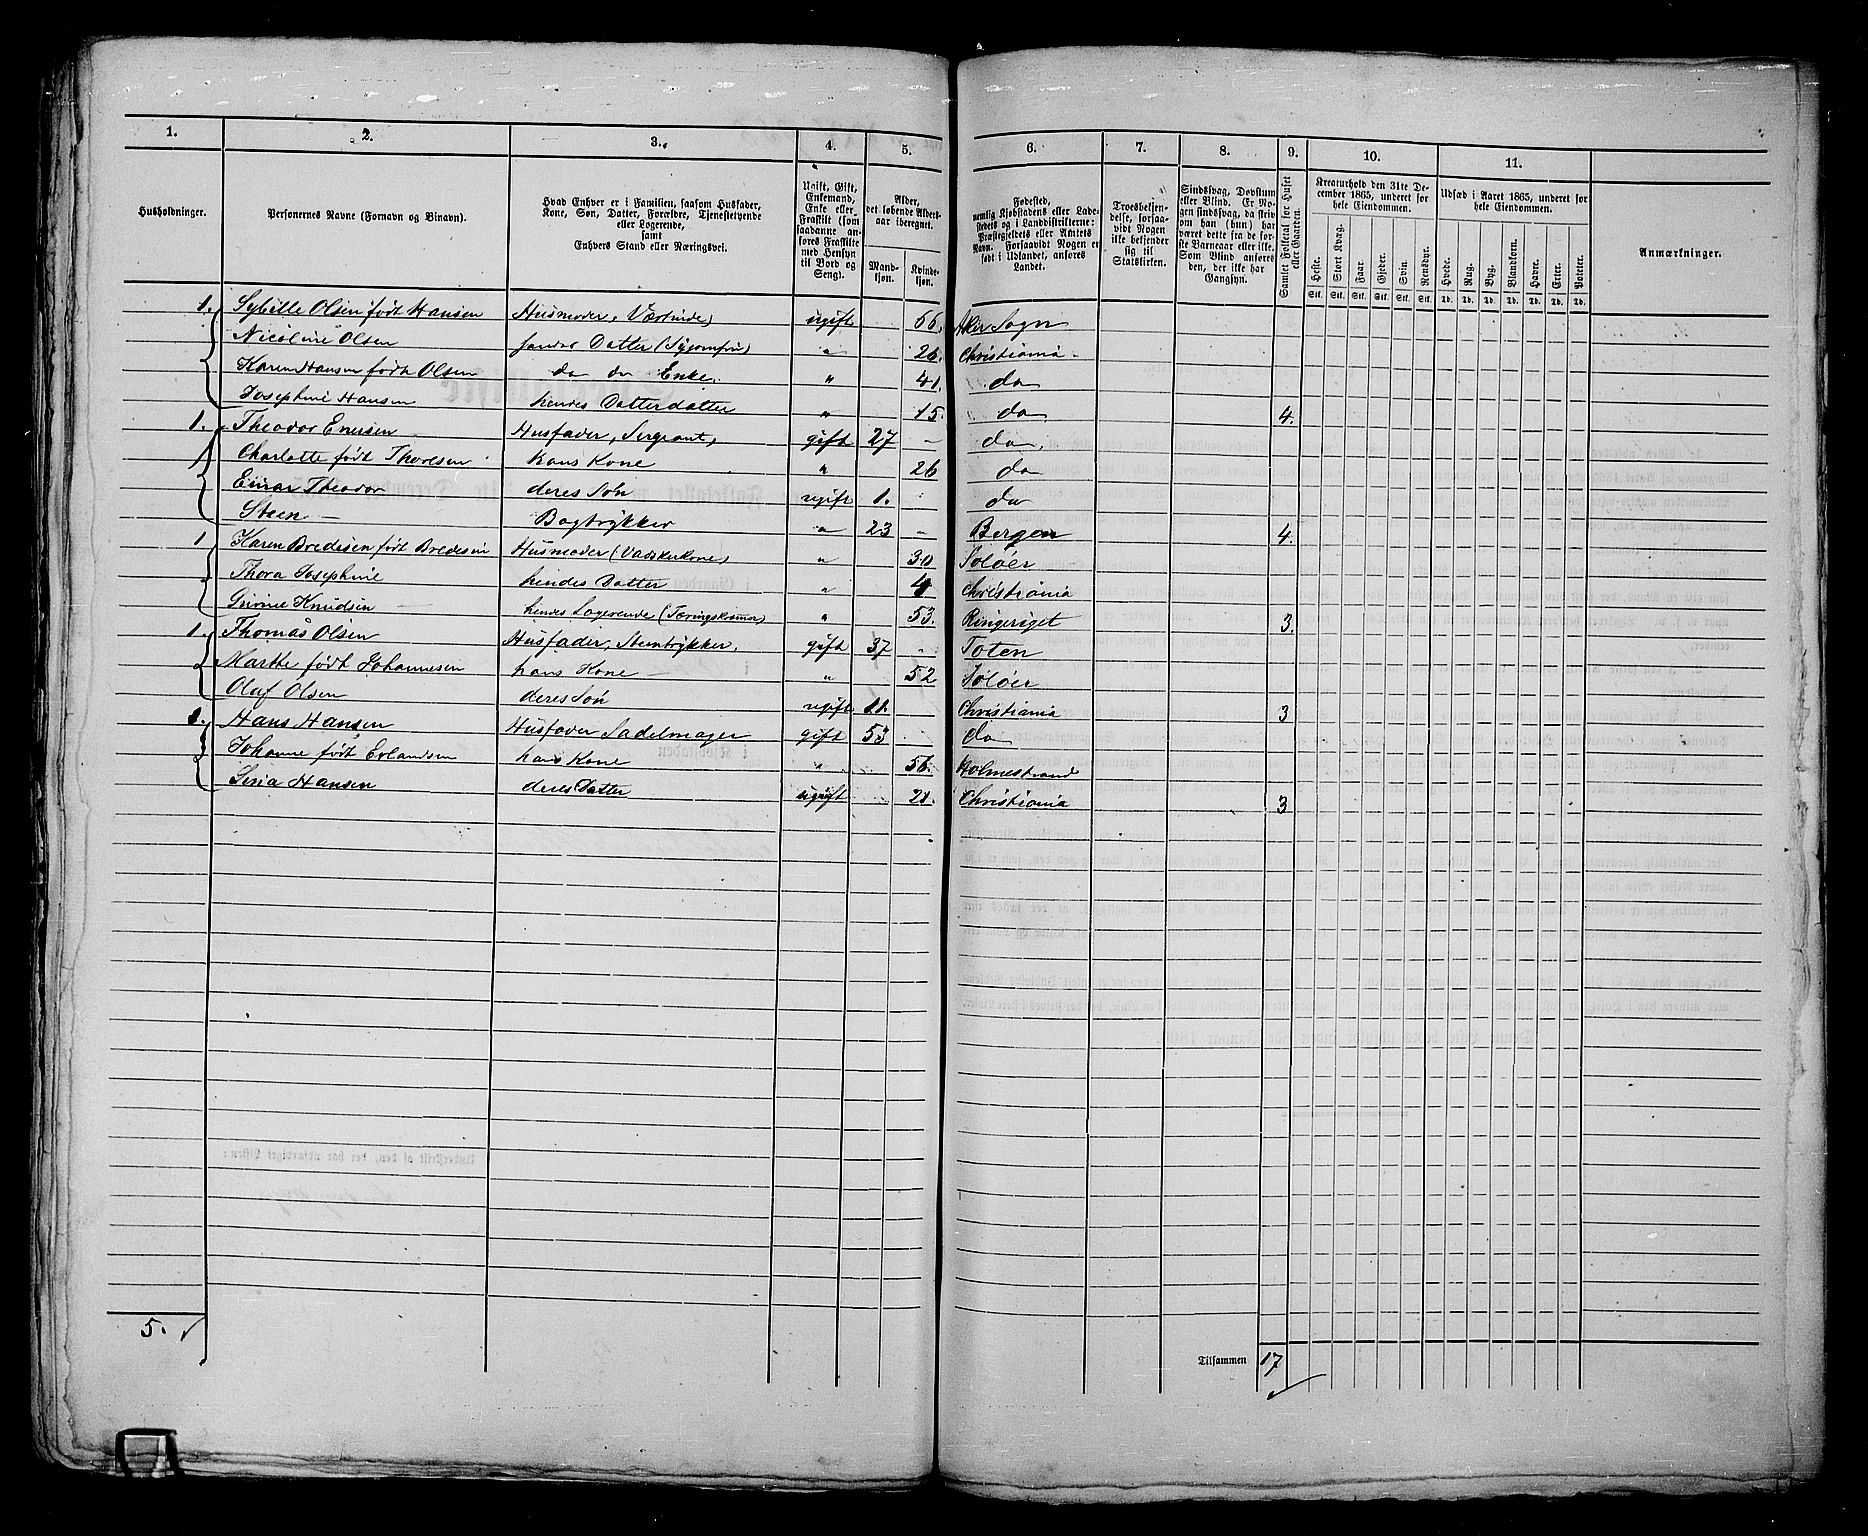 1. 2. 3. 4. 5. 6. 7. 8. 9. 10. 11.
Husholdninger.
Personernes Navne (Fornavn og Binavn).
Hvad Enhver er i Familien, saasom Husfader,
Kone, Søn, Datter, Forældre, Tjenestetyende
eller Logerende,
samt
Enhvers Stand eller Næringsvei.
Ugift, Gift,
Enkemand,
Enke eller
Fraskilt (som
saadanne an-
føres Fraskilte
med Hensyn
til Bord og
Seng).
Alder,
det løbende Alders-
aar iberegnet.
Mand-
kjøn.
Kvinde-
kjøn.
Fødested,
nemlig Kjøbstadens eller Lade-
stedets og i Landdistrikterne:
Præstegjeldets eller Amtets
Navn. Forsaavidt Nogen er
født i Udlandet, anføres
Landet.
Troesbekjen-
delse, forsaa-
vidt Nogen
ikke bekjender
sig til
Statskirken.
Sindssvag, Døvstum
eller Blind. Er No-
gen sindssvag, da skriv
om han (hun) har
været dette fra de før-
ste Barneaar eller ikke.
Som Blind anføres
den, der ikke har
Gangsyn.
Samlet Folketal for Huset
eller Gaarden.
Kreaturhold den 31te De-
cember 1865, underet for
hele Eiendommen.
Heste. Stort Kvæg. Faar. Gjeder. Svin. Rensdyr.
Stk. Stk. Stk. Stk. Stk. Stk.
Udsæd i Aaret 1865, underet for
hele Eiendommen.
Hvede. Rug. Byg. Blandkorn. Havre. Erter. Poteter.
Td. Td. Td. Td. Td. Td. Td.
Anmærkninger.
1. Sybille Olsen født Hansen Husmoder, Værtinde ugift 66. Aker Sogn
Nicoline Olsen Datter (Syjomfru) " 26. Christiania
Karen Hansen født Olsen do do Enke " 41. do
Josephine Hansen hendes Datterdatter " 15. do 4.
1. Theodor Enersen Husfader, Sergeant, gift 27 – do
Charlotte født Thoresen hans Kone " 26 do
Einar Theodor deres Søn ugift 1. do
Steen – Bogtrykker " 23 – Bergen 4.
1 Karen Bredesen født Bredesen Husmoder (Vadskerkone) " 30 Soløer
Thora Josephine hendes Datter " 4 Christiania
Knudsen hendes Logerende " 53. Ringeriget 3.
1. Thomas Olsen Husfader, Steentrykker. gift 37 " Toten
Marthe født Johannesen hans Kone " 52 Soløer
Oluf Olsen deres Søn ugift 11. Christiania 3
1. Hans Hansen Husfader Sadelmager gift 53 do
Johanne født Erlandsen hans Kone " 56. Holmestrand
Hansen deres Datter ugift 21. Christiania 3
5.
Tilsammen 17